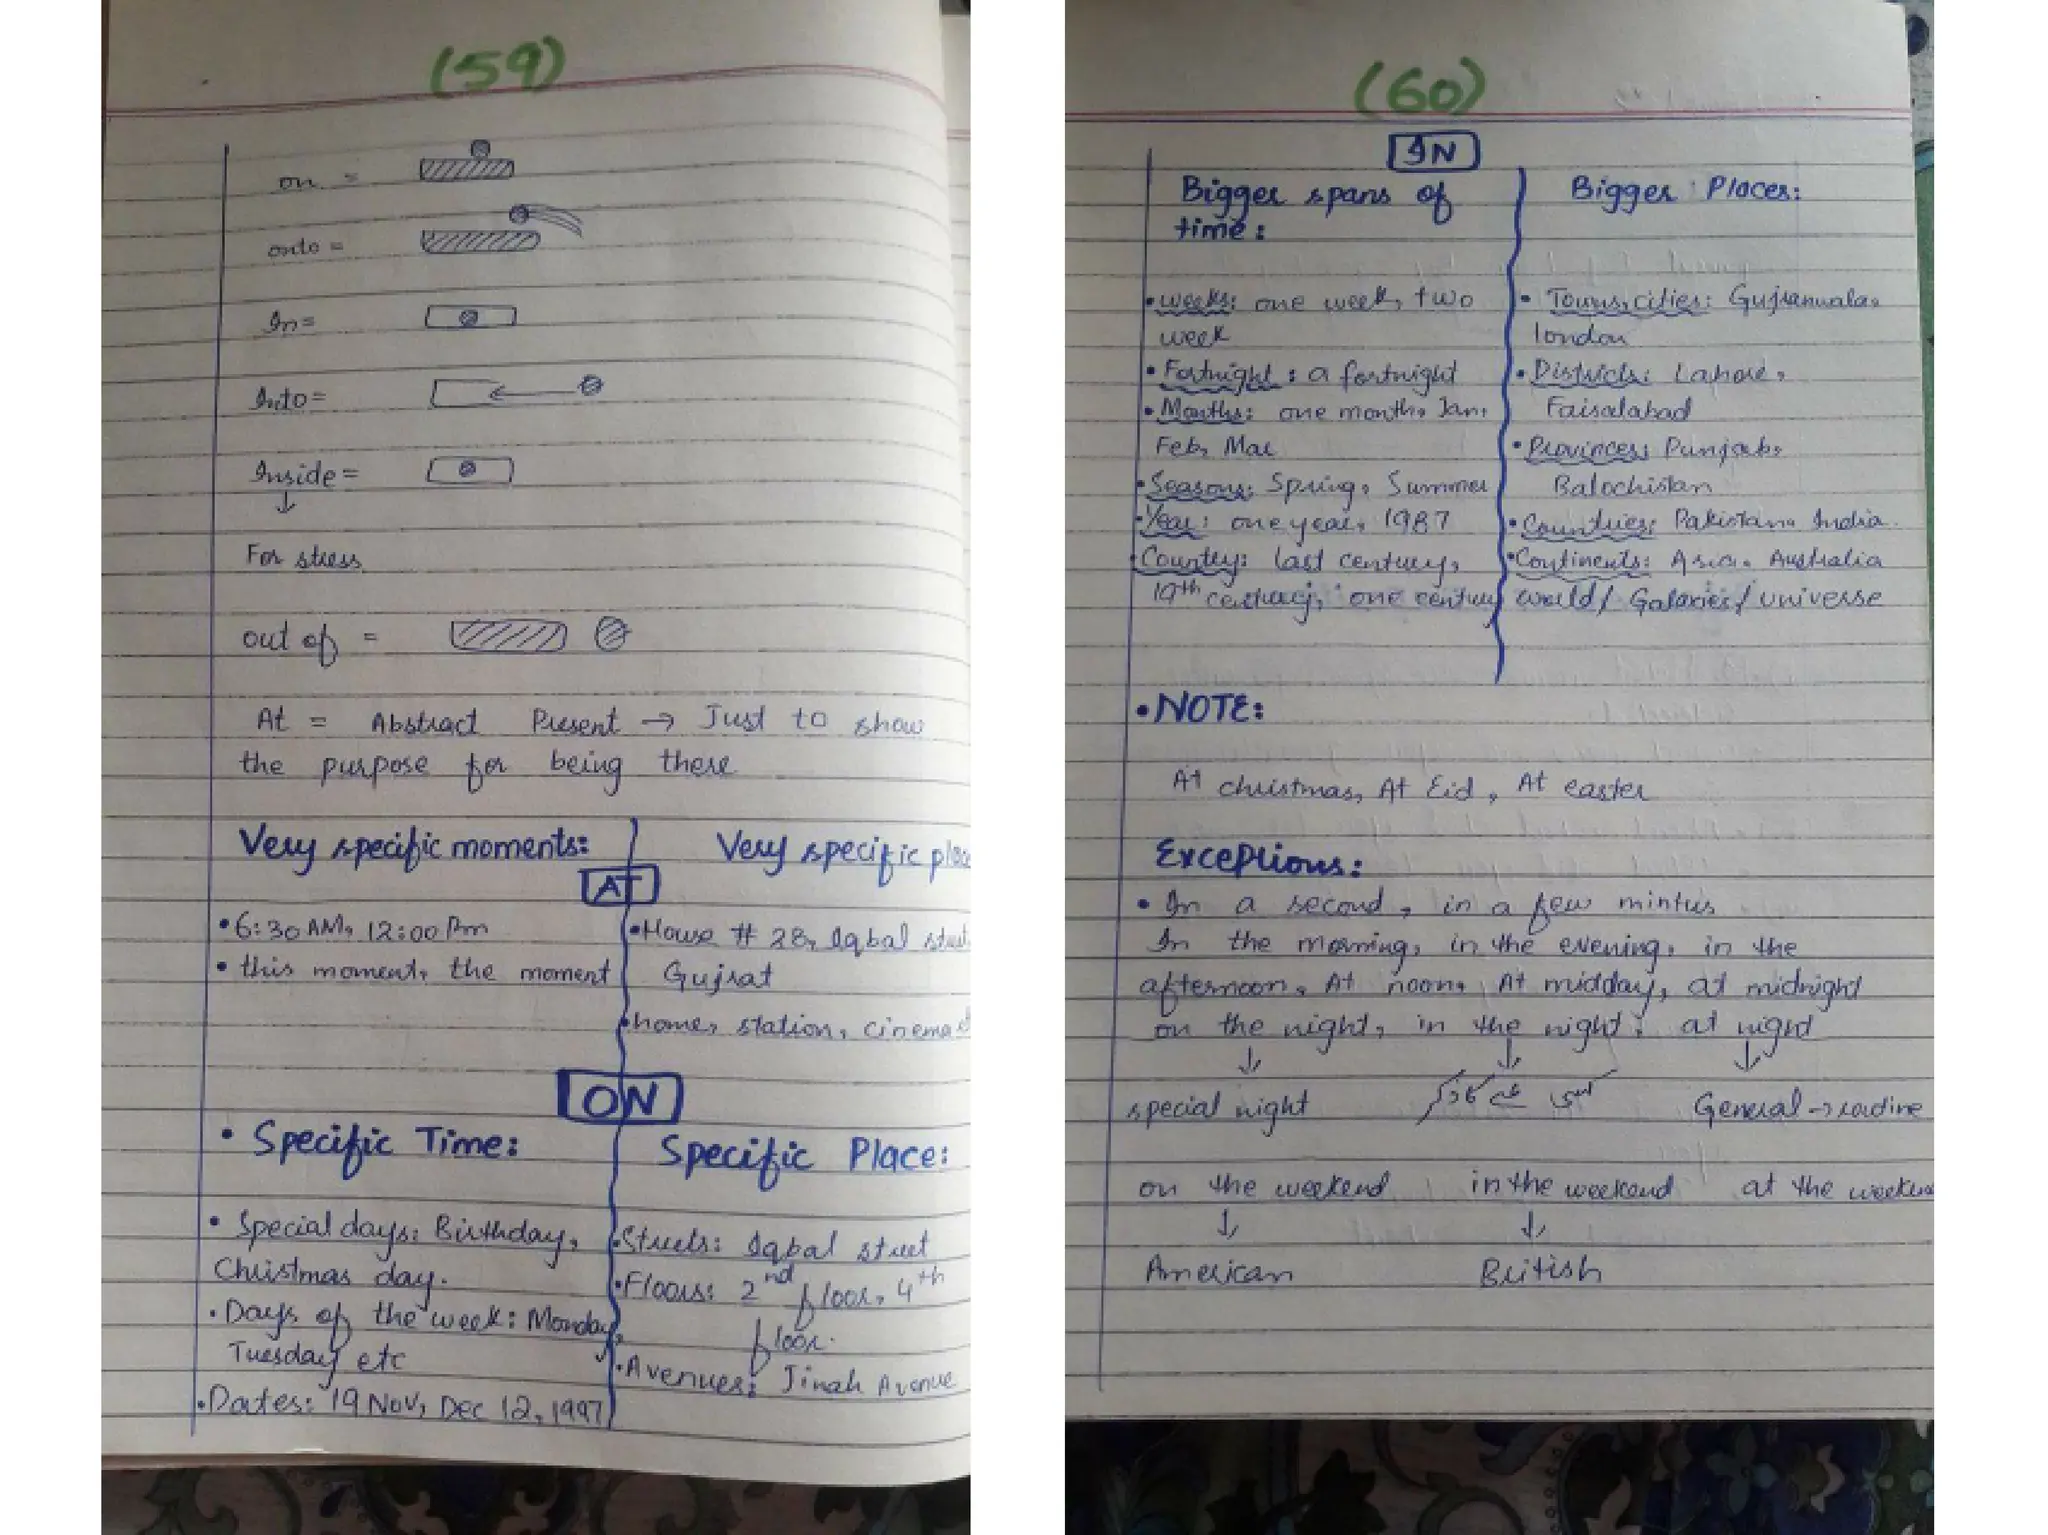 (59)
on =
onto =
In =
Into =
Inside =
For stress
out of =
At = Abstract Present → Just to show
the purpose for being there
Very specific moments:
Very specific place
AT
• 6:30 AM, 12:00 Pm
• this moment, the moment
• House # 28, Iqbal street
Gujrat
• home, station, cinema
ON
• Specific Time:
Specific Place:
• Special days: Birthday,
Christmas day.
• Days of the week: Monday,
Tuesday etc
• Dates: 19 Nov, Dec 12, 1997
• Streets: Iqbal street
• Floors: 2nd floor, 4th
floor.
• Avenues: Jinah Avenue
(60)
IN
Bigger spans of
time:
• weeks: one week, two
week
• Fortnight: a fortnight
• Months: one month, Jan,
Feb, Mar
• Seasons: Spring, Summer
• Year: one year, 1987
• Country: last century,
19th century, one century
Bigger Places:
• Towns, cities: Gujranwala,
london
• Districts: Lahore,
Faisalabad
• Provinces: Punjab,
Balochistan
• Countries: Pakistan, India.
• Continents: Asia, Australia
world/ Galaxies/ universe
• NOTE:
At christmas, At Eid, At easter
Exceptions:
• In a second, in a few mintus
In the morning, in the evening, in the
afternoon, At noon, At midday, at midnight
on the night, in the night, at night
special night
General → routine
on the weekend in the weekend at the weekend
American British